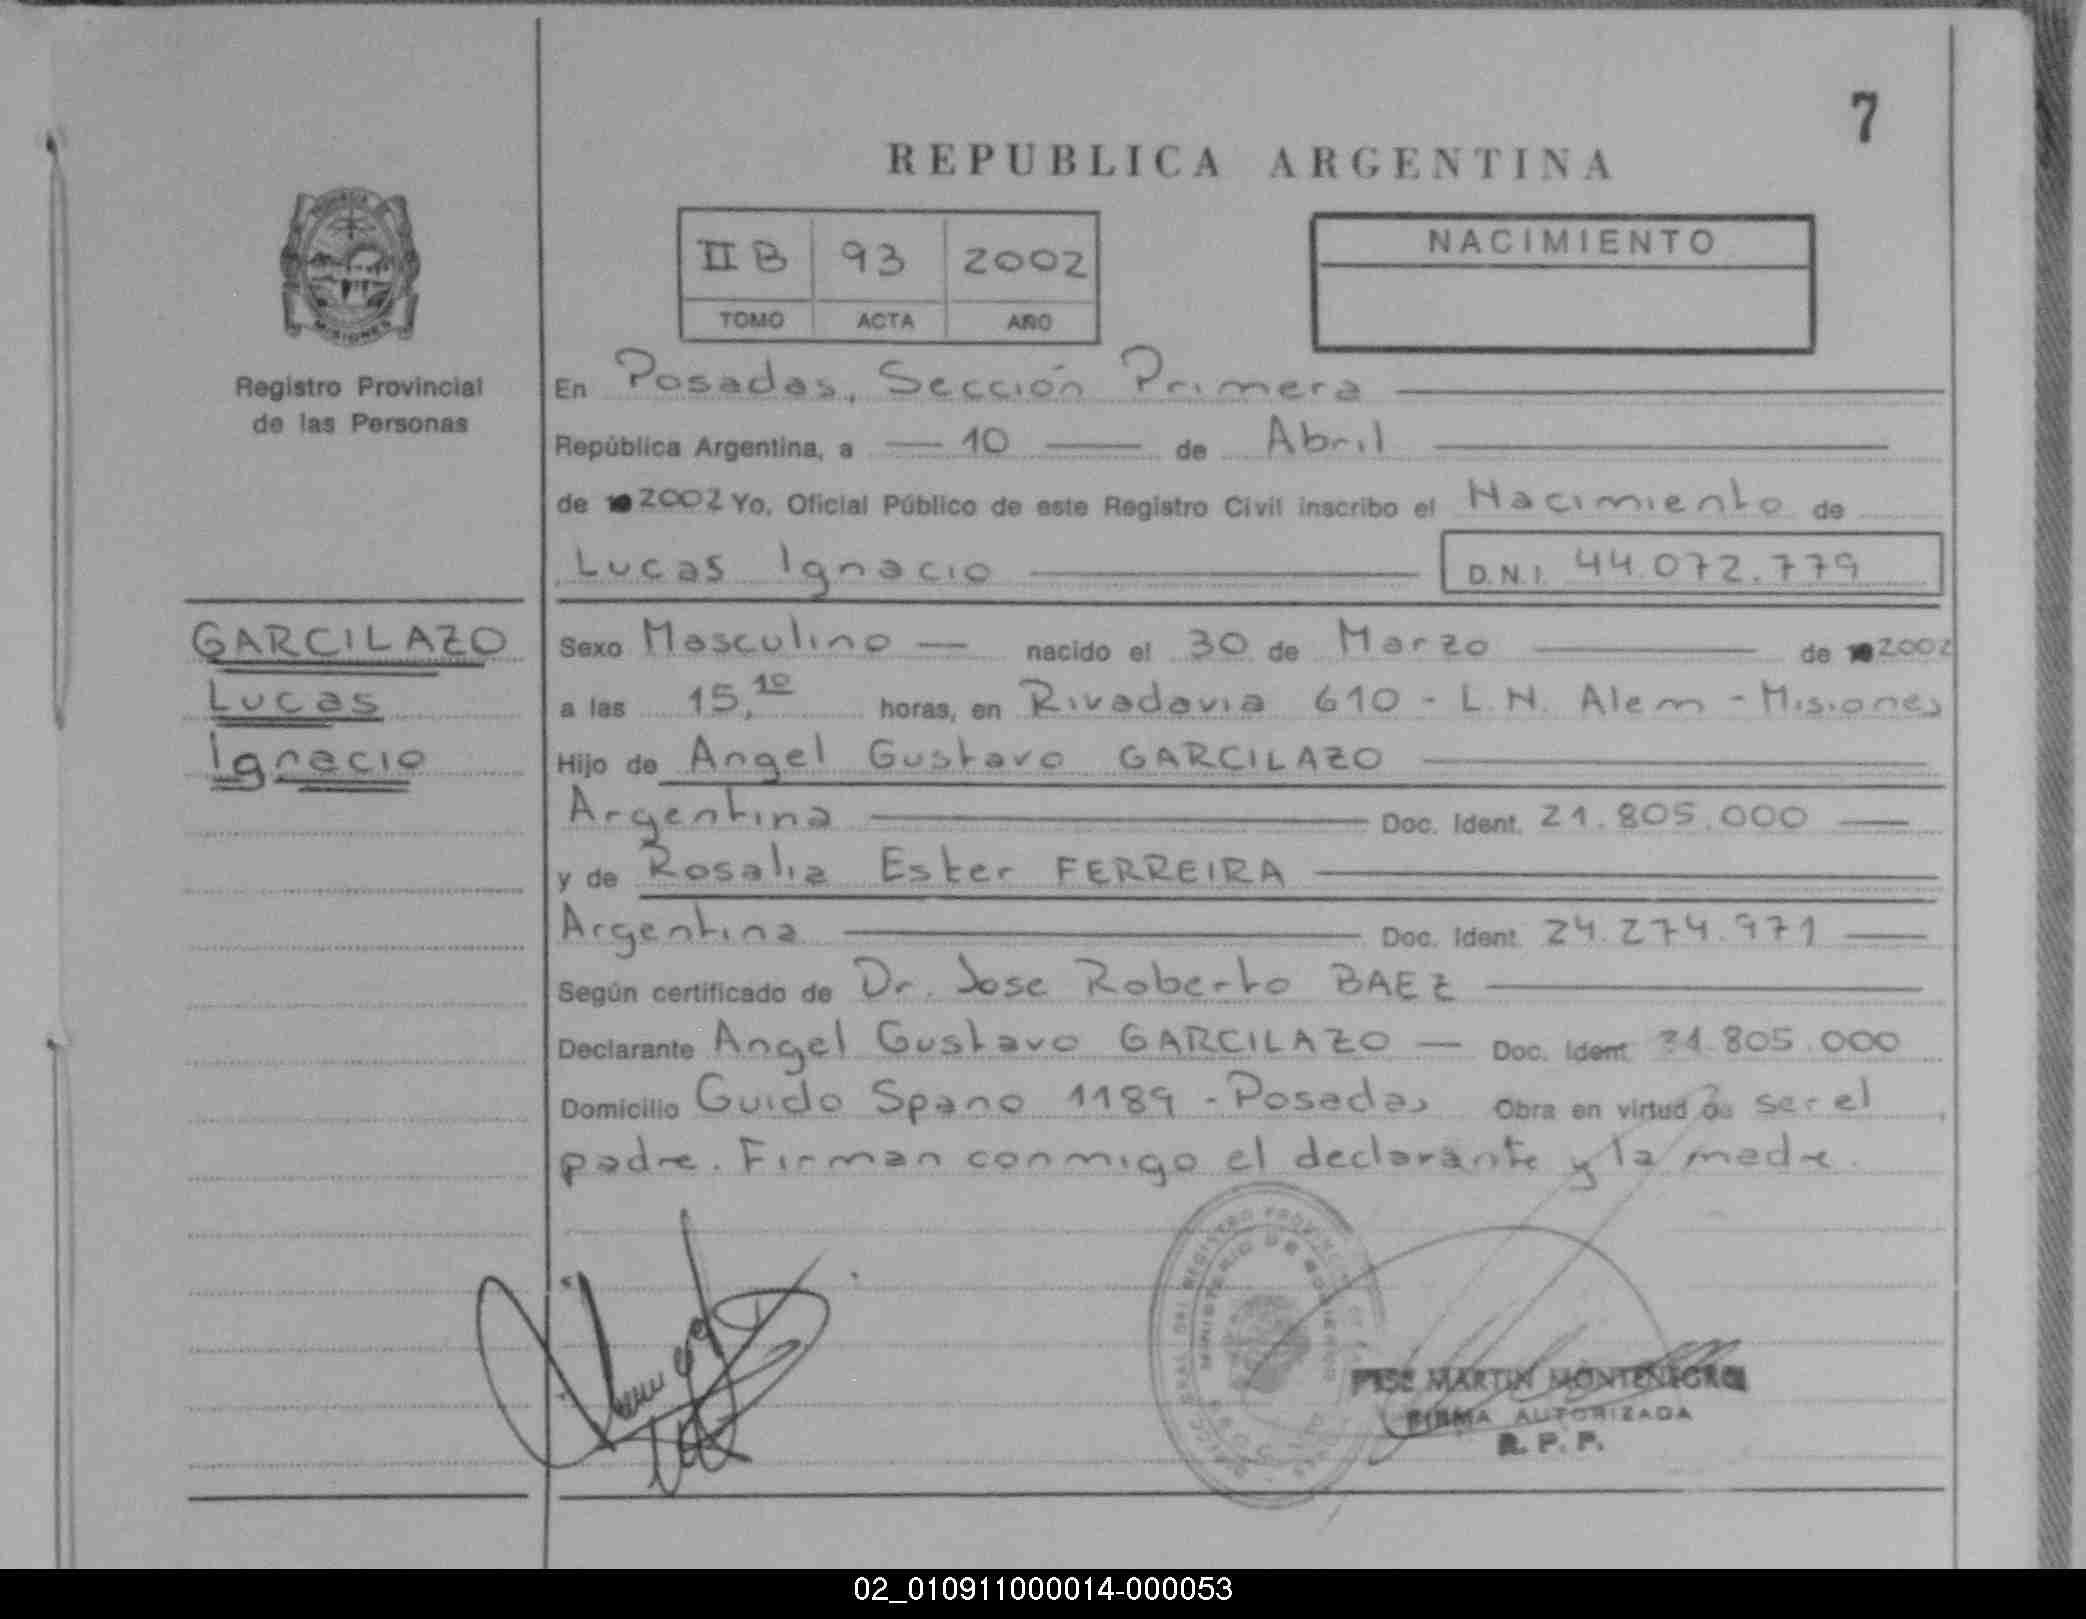 7
REPUBLICA ARGENTINA
II B 93 2002
TOMO ACTA AÑO
NACIMIENTO
MISIONES
Registro Provincial
de las Personas
En Posadas, Sección Primera
República Argentina, a 10 de Abril
de 2002 Yo, Oficial Público de este Registro Civil inscribo el Nacimiento de
Lucas Ignacio D.N.I. 44.072.779
GARCILAZO
Lucas
Ignacio
Sexo Masculino nacido el 30 de Marzo de 2002
a las 15,10 horas, en Rivadavia 610 - L.N. Alem - Misiones
Hijo de Angel Gustavo GARCILAZO
Argentina Doc. Ident. 21.805.000
y de Rosalia Ester FERREIRA
Argentina Doc. Ident. 24.274.971
Según certificado de Dr. Jose Roberto BAEZ
Declarante Angel Gustavo GARCILAZO Doc. Ident. 21.805.000
Domicilio Guido Spano 1189 - Posadas Obra en virtud de ser el
padre. Firman conmigo el declarante y la madre.
MARTIN MONTENEGRO
FIRMA AUTORIZADA
R. P. P.
02_010911000014-000053